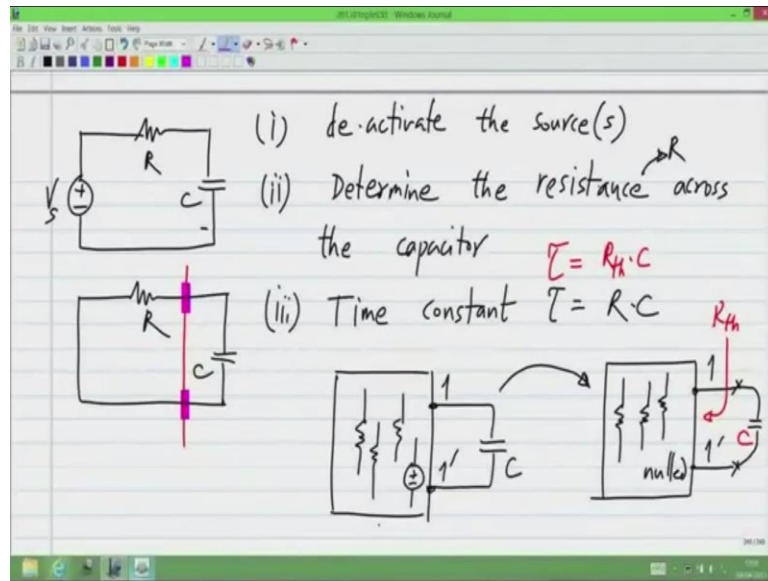 Windows Journal
File Edit View Insert Actions Tools Help
Page Width
B I
(i) de-activate the source(s)
R
Vs
+
-
C
-
R
(ii) Determine the resistance across
the capacitor
τ = Rth·C
(iii) Time constant τ = R·C
R
C
1
1'
C
+
-
Rth
1
1'
C
nulled